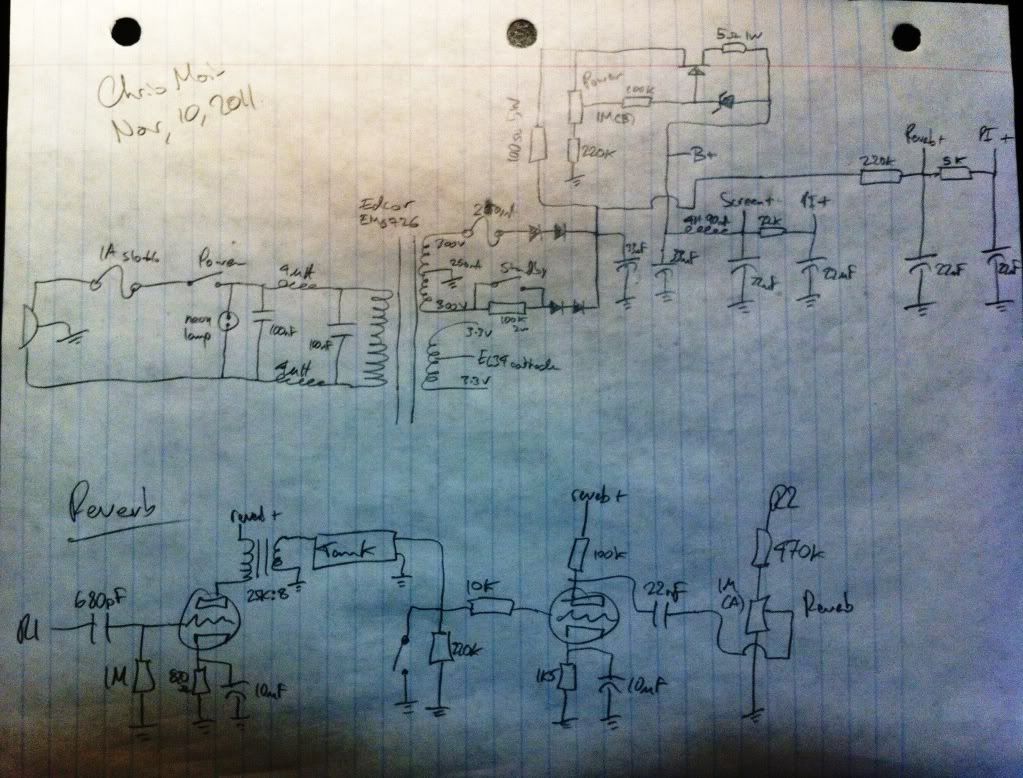 Chris Moir
Nov, 10, 2011
5Ω 1W
Power
100K
1M(B)
100Ω 5W
220K
B+
Reverb+
PI+
220K
5K
Edcor
Screen+
PI+
22K
22uF
22uF
22uF
22uF
300V
Standby
300V
100K
2W
1A sloblo
Power
4uH
neon
lamp
100nF
100nF
4uH
3.3V
EL34 cathode
3.3V
Reverb
reverb+
Tank
25K:8
680pF
R1
1M
820
10uF
10K
220K
reverb+
100K
22nF
1K5
10uF
R2
470K
1M
(A)
Reverb